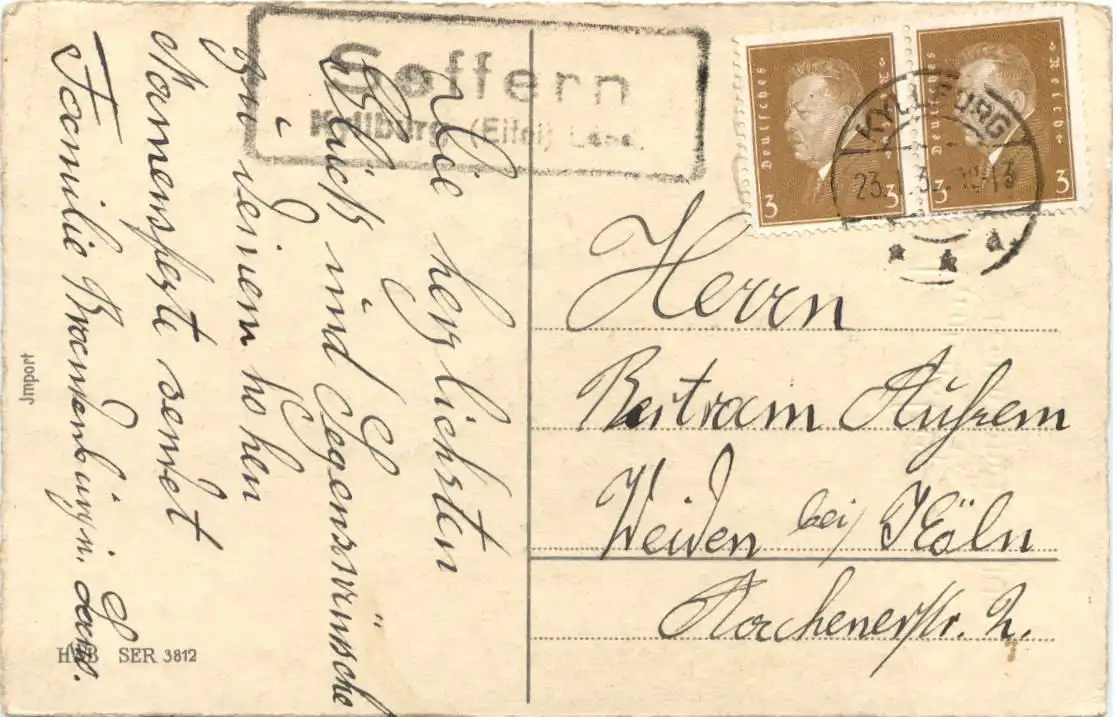 Seffern
Kyllburg (Eifel) Land.
Deutsches Reich
3
Deutsches Reich
3
KYLLBURG
23. 3 -13
Herrn
Bertram Aufrem
Weiden bei Köln
Aachenerstr. 2.
Die herzlichsten
Glück und Segenswünsche
zum deinem hohen
Namensfeste sendet
Familie Brandenburg u.
Jmport
HWB SER 3812